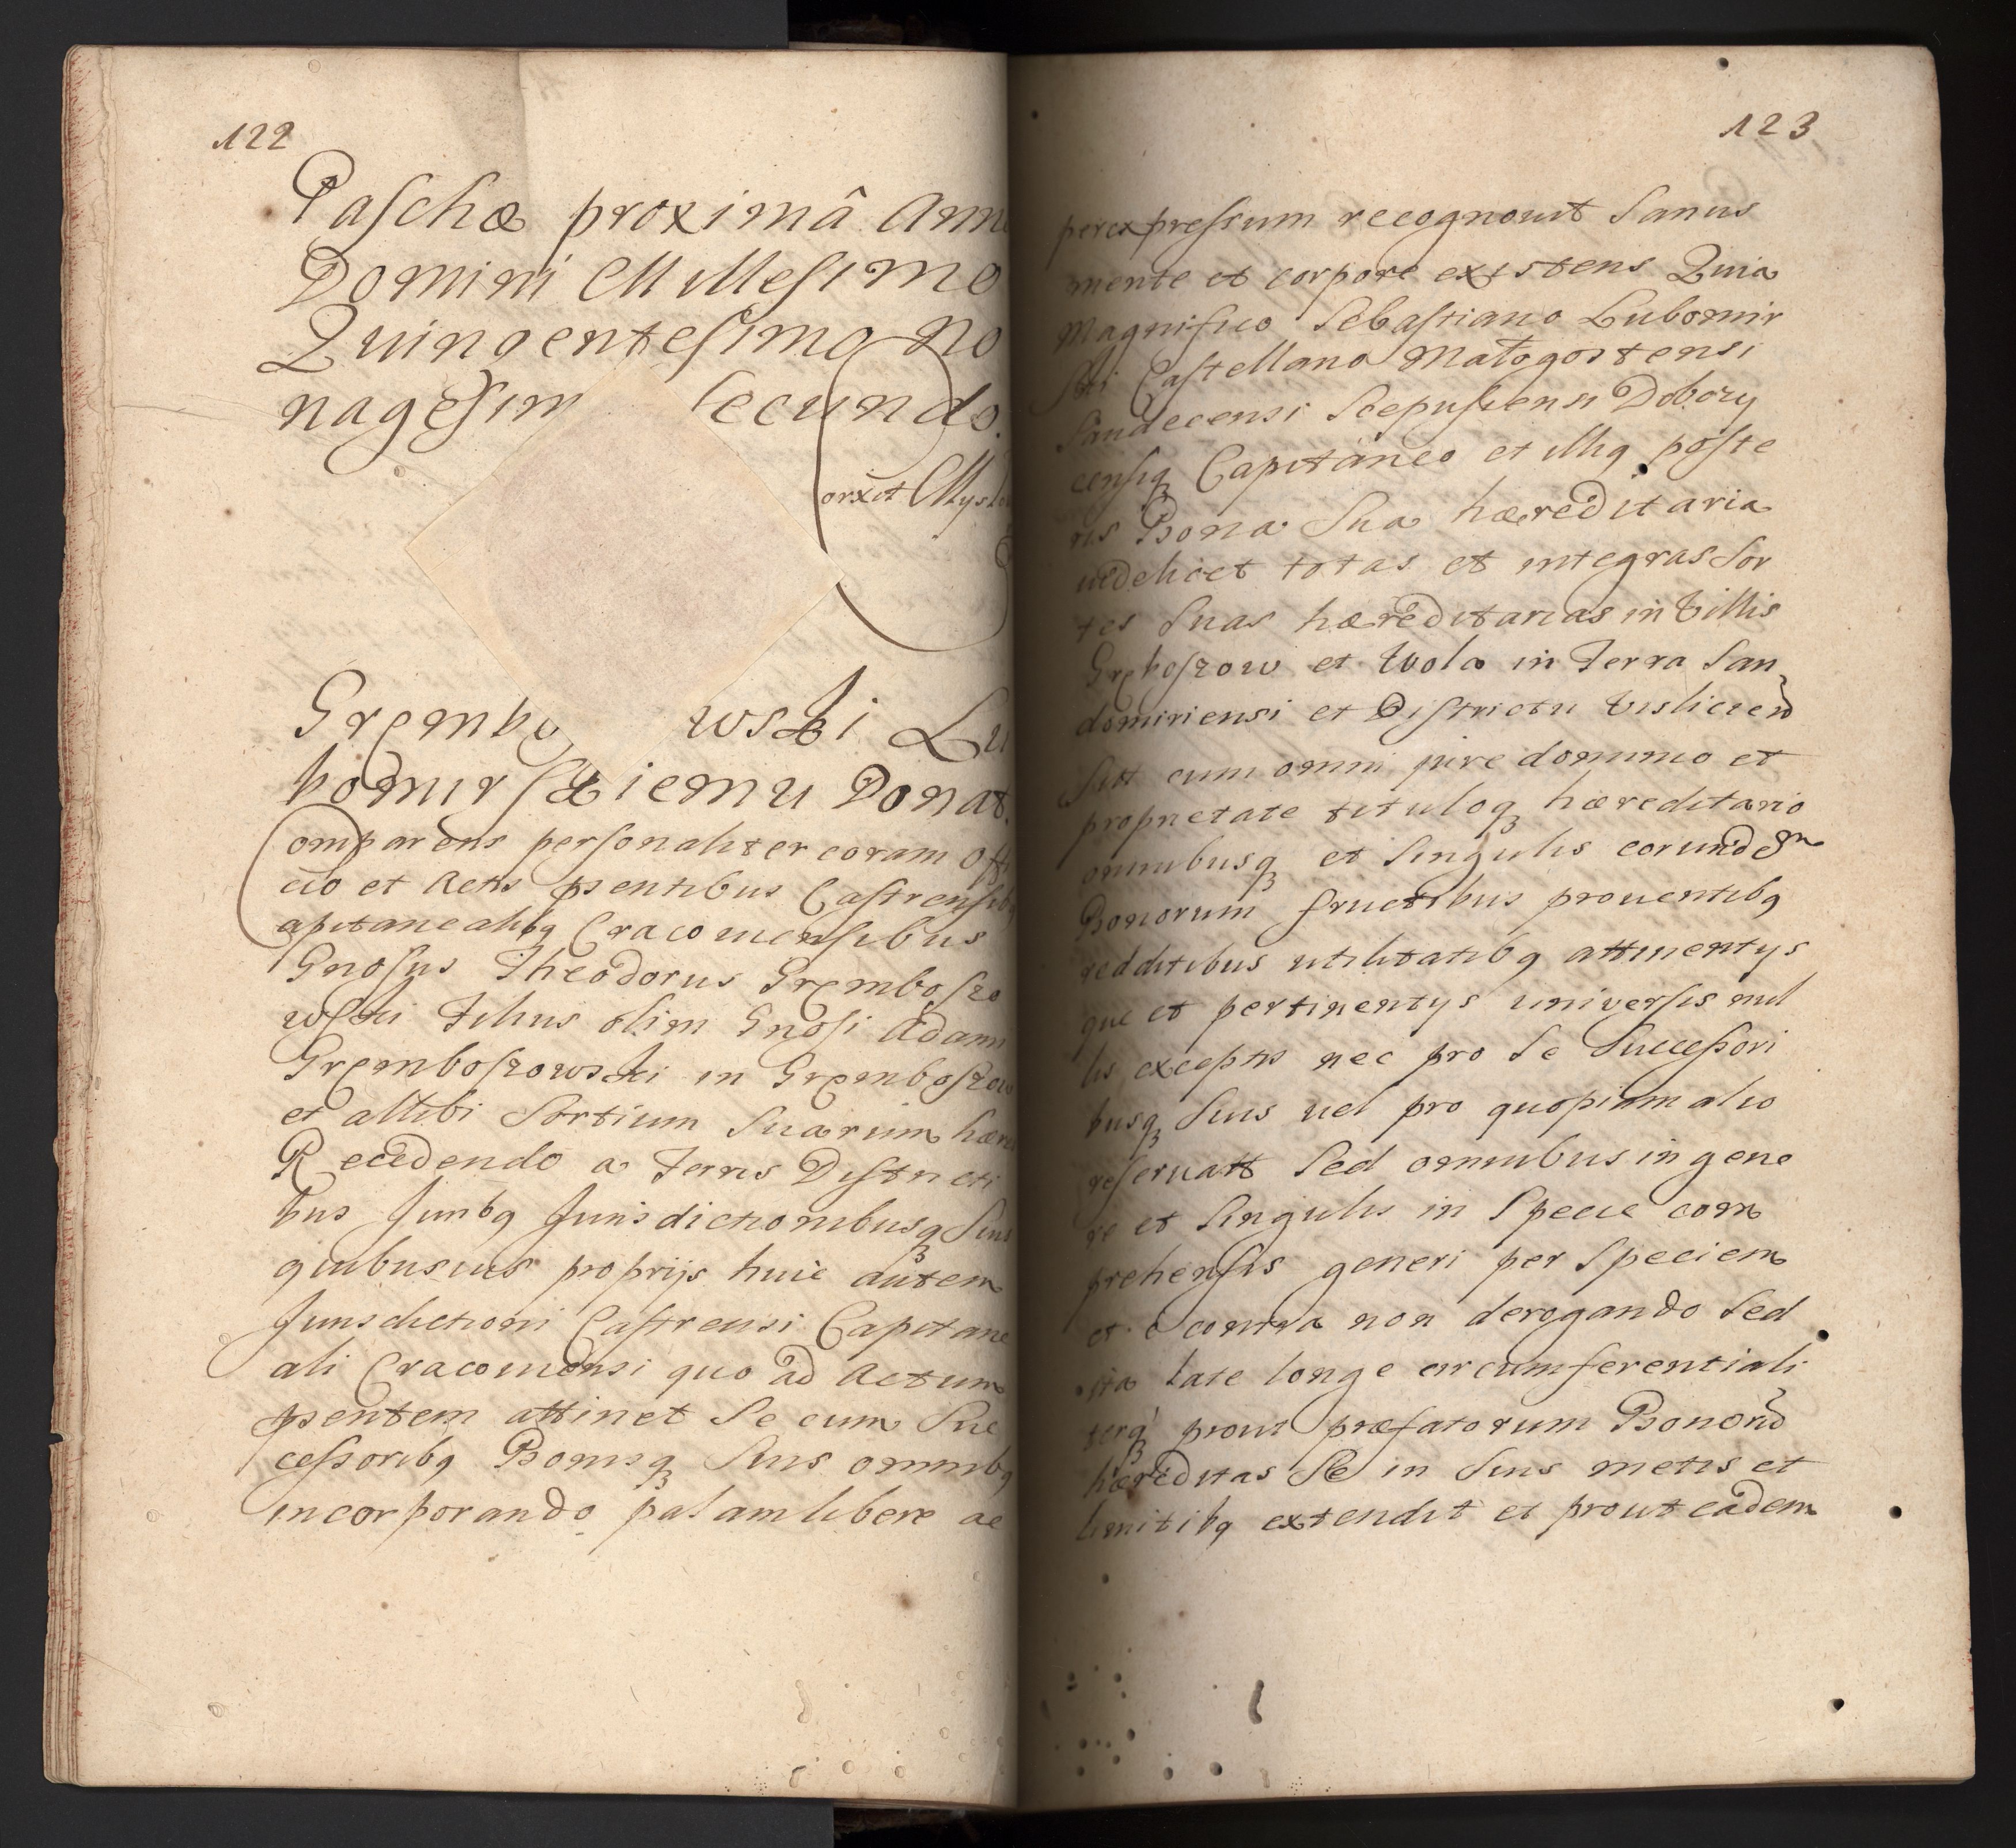 122
Paschæ proximâ Ann
Domini Millesimo
Quingentesimo No
nagesim secundo.
orxit Mys
Grembo wski Lu
bomirskiemu Donat.
Comparens personaliter coram Offi
cio et Actis psentibus Castrensibq
Capitanealibq Cracouiensibus
Gnosus Theodorus Gremboszo
wski Filius olim Gnosi Adam
Gremboszowski in Gremboszow
et alibi Sortium Suarum hære
Recedendo a Terris Districti
bus Juribq Jurisdictionibusq Suis
quibusuis proprijs huic autem
Jurisdictioni Castrensi Capitane
ali Cracouiensi quo ad Actum
psentem attinet Se cum Suc
cessoribq Bonisq Suis omnibq
incorporando palam libere ac
123
per expressum recognouit Sanus
mente et corpore existens Quia
Magnifico Sebastiano Lubomir
ski Castellano Małogostensi
Sandecensi Scepusiensi Dobczy
censiq Capitaneo et illiq poste
ris Bona Sua hæreditaria
uidelicet totas et integras Sor
tes Suas hæreditarias in Villis
Gręboszow et Wola in Terra San
domiriensi et Districtu Vislicien
Sitt cum omni jure dominio et
proprietate tituloq hæreditario
omnibusq et Singulis eorundem
Bonorum fructibus prouentibq
redditibus utilitatibq attinentys
que et pertinentys universis nul
lis exceptis nec pro Se Successori
busq Suis uel pro quopiam alio
reseruatt Sed omnibus in gene
re et Singulis in Specie com
prehensis generi per Speciem
et e contra non derogando Sed
ita late longe circumferentiali
terq prout præfatorum Bonorũ
hæreditas Se in Suis metis et
limitibq extendit et prout eadem